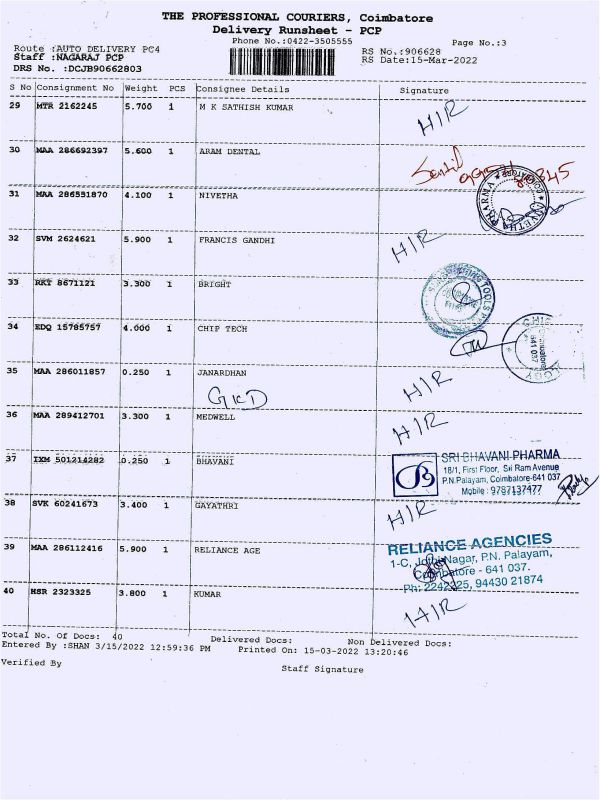 THE PROFESSIONAL COURIERS, Coimbatore
Delivery Runsheet - PCP
Phone No.:0422-3505555
Page No.:3
Route :AUTO DELIVERY PC4
RS No.:906628
Staff :NAGARAJ PCP
RS Date:15-Mar-2022
DRS No. :DCJB90662803
S No Consignment No Weight PCS Consignee Details Signature
29 MTR 2162245 5.700 1 M K SATHISH KUMAR HIR
30 MAA 286692397 5.600 1 ARAM DENTAL
31 MAA 286551870 4.100 1 NIVETHA
NIVETHA PHARMA
32 SVM 2624621 5.900 1 FRANCIS GANDHI HIR
33 RKT 8671121 3.300 1 BRIGHT
34 EDQ 15785757 4.000 1 CHIP TECH
641 037
35 MAA 286011857 0.250 1 JANARDHAN HIR
36 MAA 289412701 3.300 1 MEDWELL HIR
37 IXM 501214282 0.250 1 BHAVANI
SRI BHAVANI PHARMA
18/1, First Floor, Sri Ram Avenue
P.N.Palayam, Coimbatore-641 037
Mobile : 9787137477
38 SVK 60241673 3.400 1 GAYATHRI HIR
39 MAA 286112416 5.900 1 RELIANCE AGE
RELIANCE AGENCIES
1-C, Jothi Nagar, P.N. Palayam,
Coimbatore - 641 037.
Ph: 2242325, 94430 21874
40 HSR 2323325 3.800 1 KUMAR HIR
Total No. Of Docs: 40 Delivered Docs: Non Delivered Docs:
Entered By :SHAN 3/15/2022 12:59:36 PM Printed On: 15-03-2022 13:20:46
Verified By Staff Signature